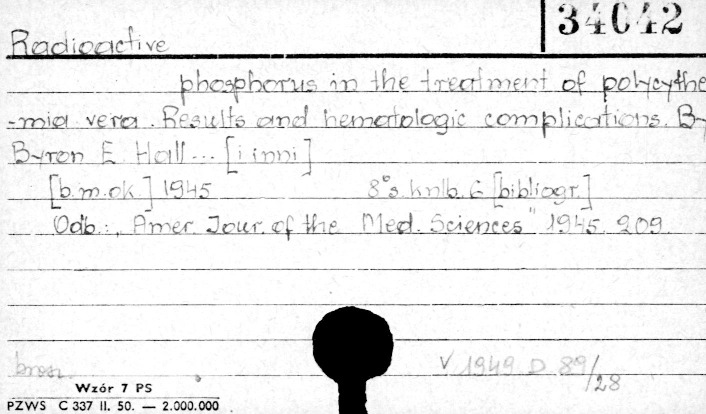 34042
Radioactive
phosphorus in the treatment of polycythe
-mia vera. Results and hematologic complications. By
Byron E. Hall... [i inni]
[b.m.ok.] 1945 8°s. knlb. 6 [bibliogr.]
Odb.: "Amer. Jour. of the Med. Sciences" 1945. 209.
brosz.
V 1949 D 89/28
Wzór 7 PS
PZWS C 337 II. 50. — 2.000.000